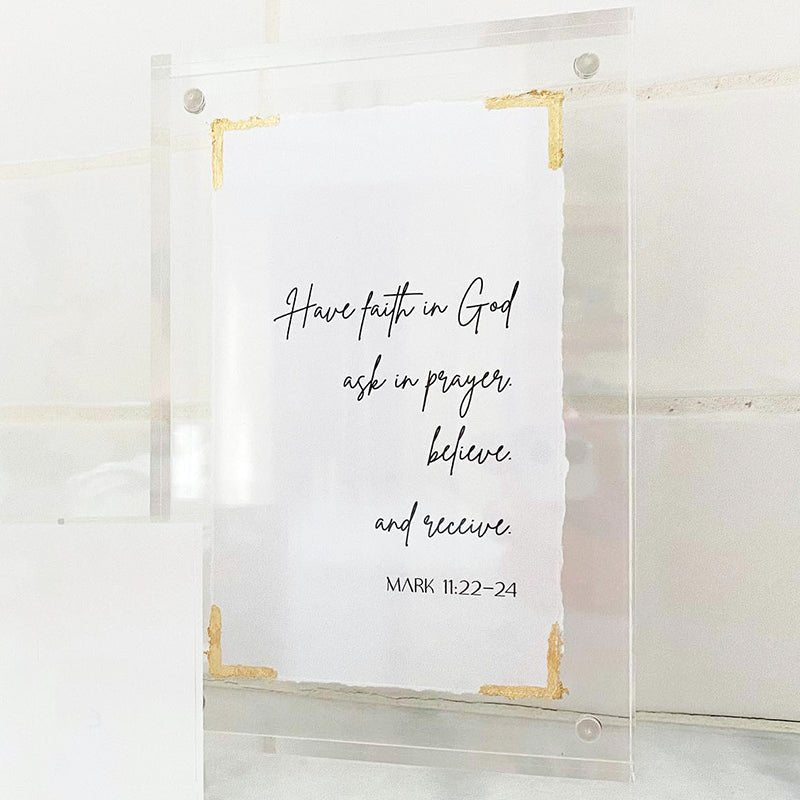 Have faith in God
ask in prayer.
believe.
and receive.
MARK 11:22-24